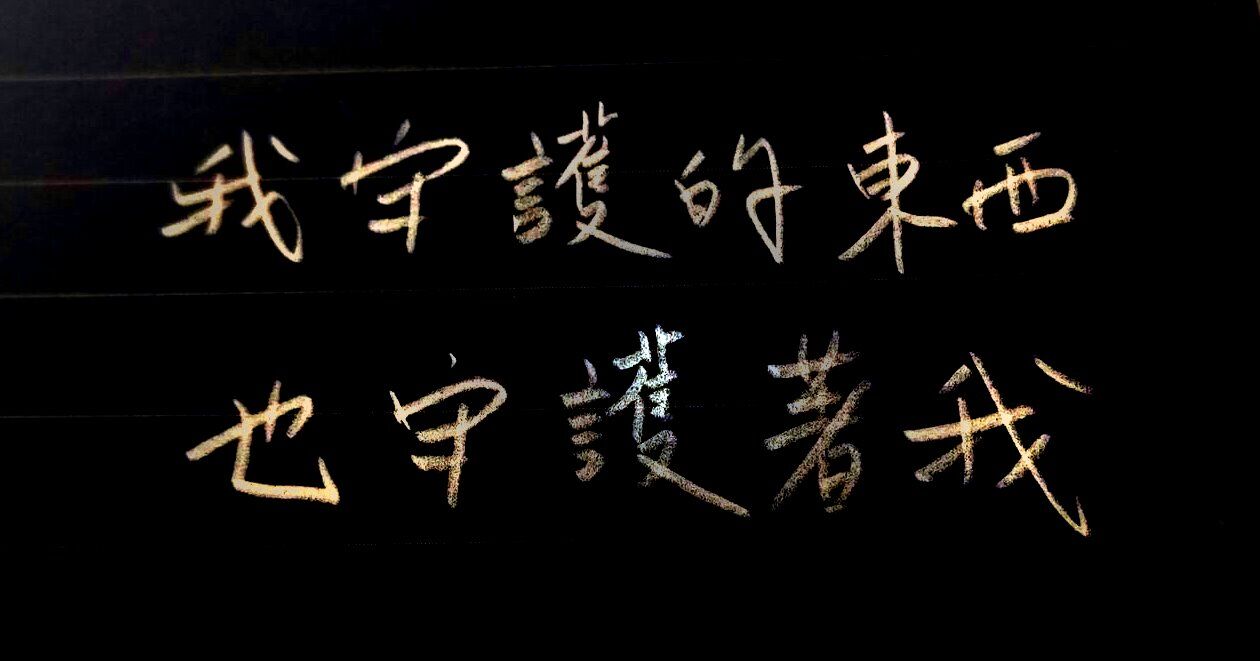 我守護的東西
也守護著我